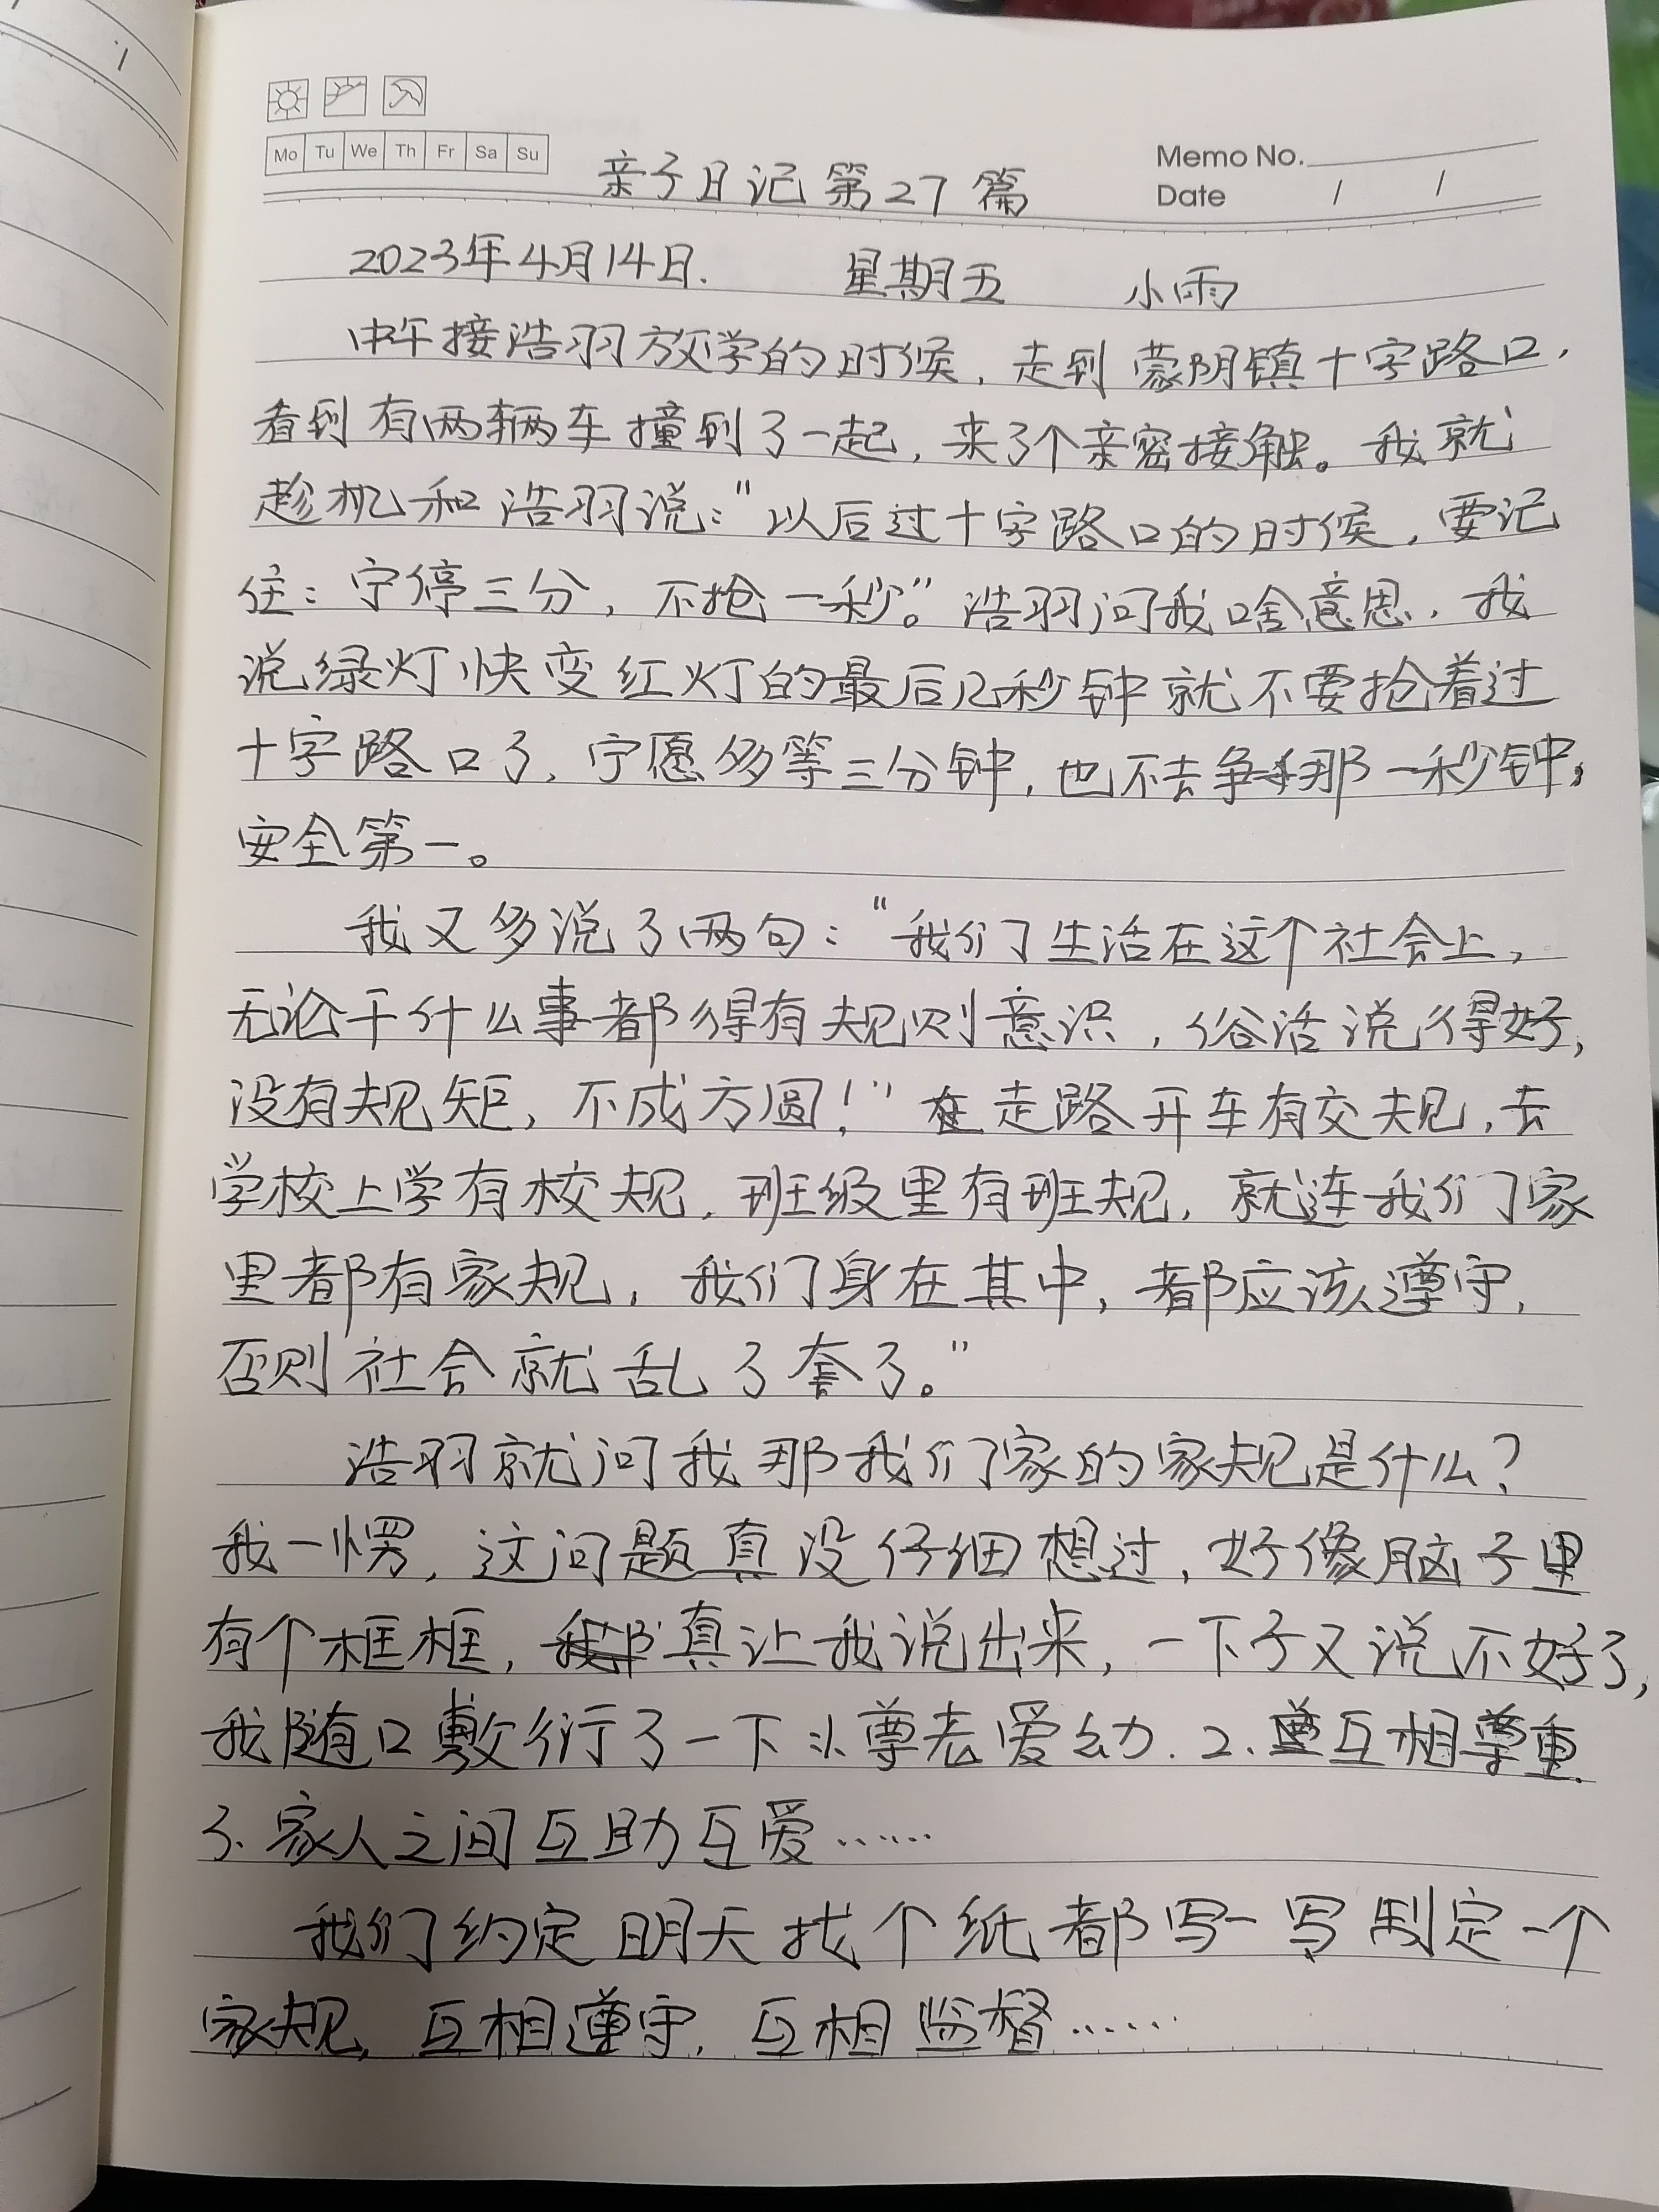 Mo Tu We Th Fr Sa Su
Memo No.
Date / /
亲子日记第27篇
2023年4月14日. 星期五 小雨
中午接浩羽放学的时候,走到蒙阴镇十字路口,
看到有两辆车撞到了一起,来了个亲密接触。我就
趁机和浩羽说:"以后过十字路口的时候,要记
住:宁停三分,不抢一秒。"浩羽问我啥意思,我
说绿灯快变红灯的最后几秒钟就不要抢着过
十字路口了,宁愿多等三分钟,也不去争那一秒钟,
安全第一。
我又多说了两句:"我们生活在这个社会上,
无论干什么事都得有规则意识,俗话说得好,
没有规矩,不成方圆!"在走路开车有交规,去
学校上学有校规,班级里有班规,就连我们家
里都有家规,我们身在其中,都应该遵守,
否则社会就乱了套了。"
浩羽就问我那我们家的家规是什么?
我一愣,这问题真没仔细想过,好像脑子里
有个框框,真让我说出来,一下子又说不好了,
我随口敷衍了一下:1.尊老爱幼.2.互相尊重.
3.家人之间互助互爱……
我们约定明天找个纸都写一写制定一个
家规,互相遵守,互相监督……